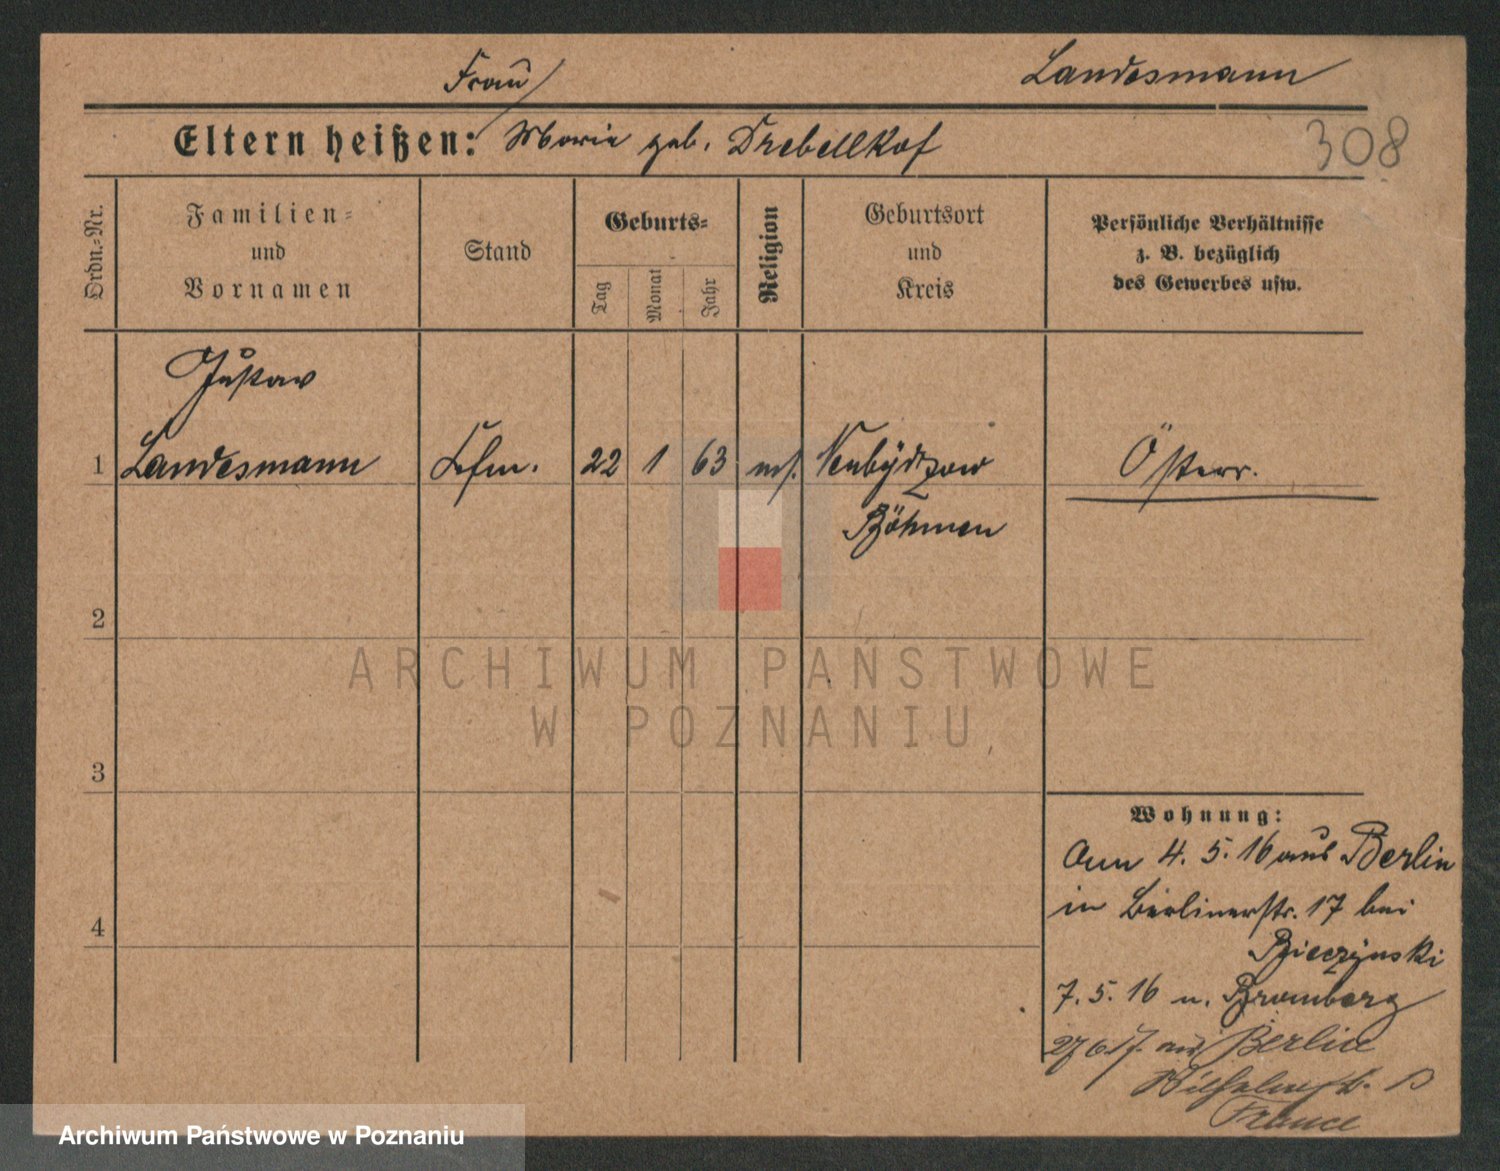 Frau Landesmann
Eltern heißen: Marie geb. Drebellkof
308
Ordn.=Nr.
Familien=
und
Vornamen
Stand
Geburts=
Tag
Monat
Jahr
Religion
Geburtsort
und
Kreis
Persönliche Verhältnisse
z. B. bezüglich
des Gewerbes usw.
Gustav
1 Landesmann Kfm. 22 1 63 Neubydzow Österr.
Böhmen
2
ARCHIWUM PAŃSTWOWE
W POZNANIU
3
Wohnung:
4. 5. 16 aus Berlin
in Berlinerstr. 17 bei
4
Bieczynski
7. 5. 16 n. Bromberg
27 6 17. aus Berlin
Wilhelmstr.
France
Archiwum Państwowe w Poznaniu